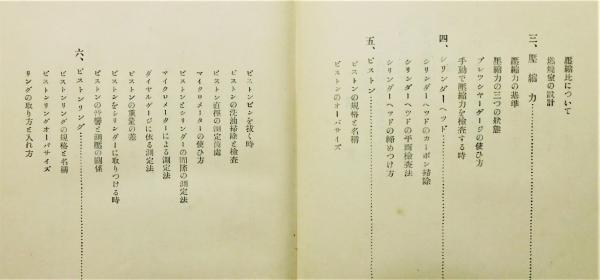 壓縮比について
燃燒室の設計
三、壓縮力
壓縮力の基準
壓縮力の三つの狀態
プレツシヤーゲージの使ひ方
手動で壓縮力を檢査する時
四、シリンダーヘツド
シリンダーヘツドのカーボン掃除
シリンダーヘツドの平面檢査法
シリンダーヘツドの締めつけ方
五、ピストン
ピストンの規格と名稱
ピストンのオーバサイズ
ピストンピンを拔く時
ピストンの洗油掃除と檢査
ピストン直徑の測定箇處
マイクロメーターの使ひ方
ピストンとシリンダーの間隙の測定法
マイクロメーターによる測定法
ダイヤルゲージに依る測定法
ピストンの重量の差
ピストンをシリンダーに取りつける時
ピストンの音響と調壓の關係
六、ピストンリング
ピストンリングの規格と名稱
ピストンリングオーバサイズ
リングの取り方と入れ方